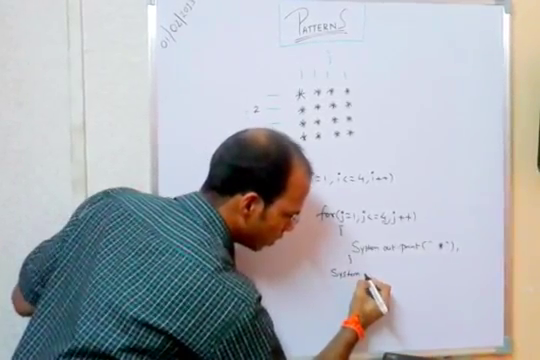 01/02/2023
PATTERNS
i
1 1 1 1
* * * *
2
* * * *
* * * *
* * * *
=1, i<=4, i++)
for(j=1, j<=4, j++)
{
System out print(" *"),
}
System